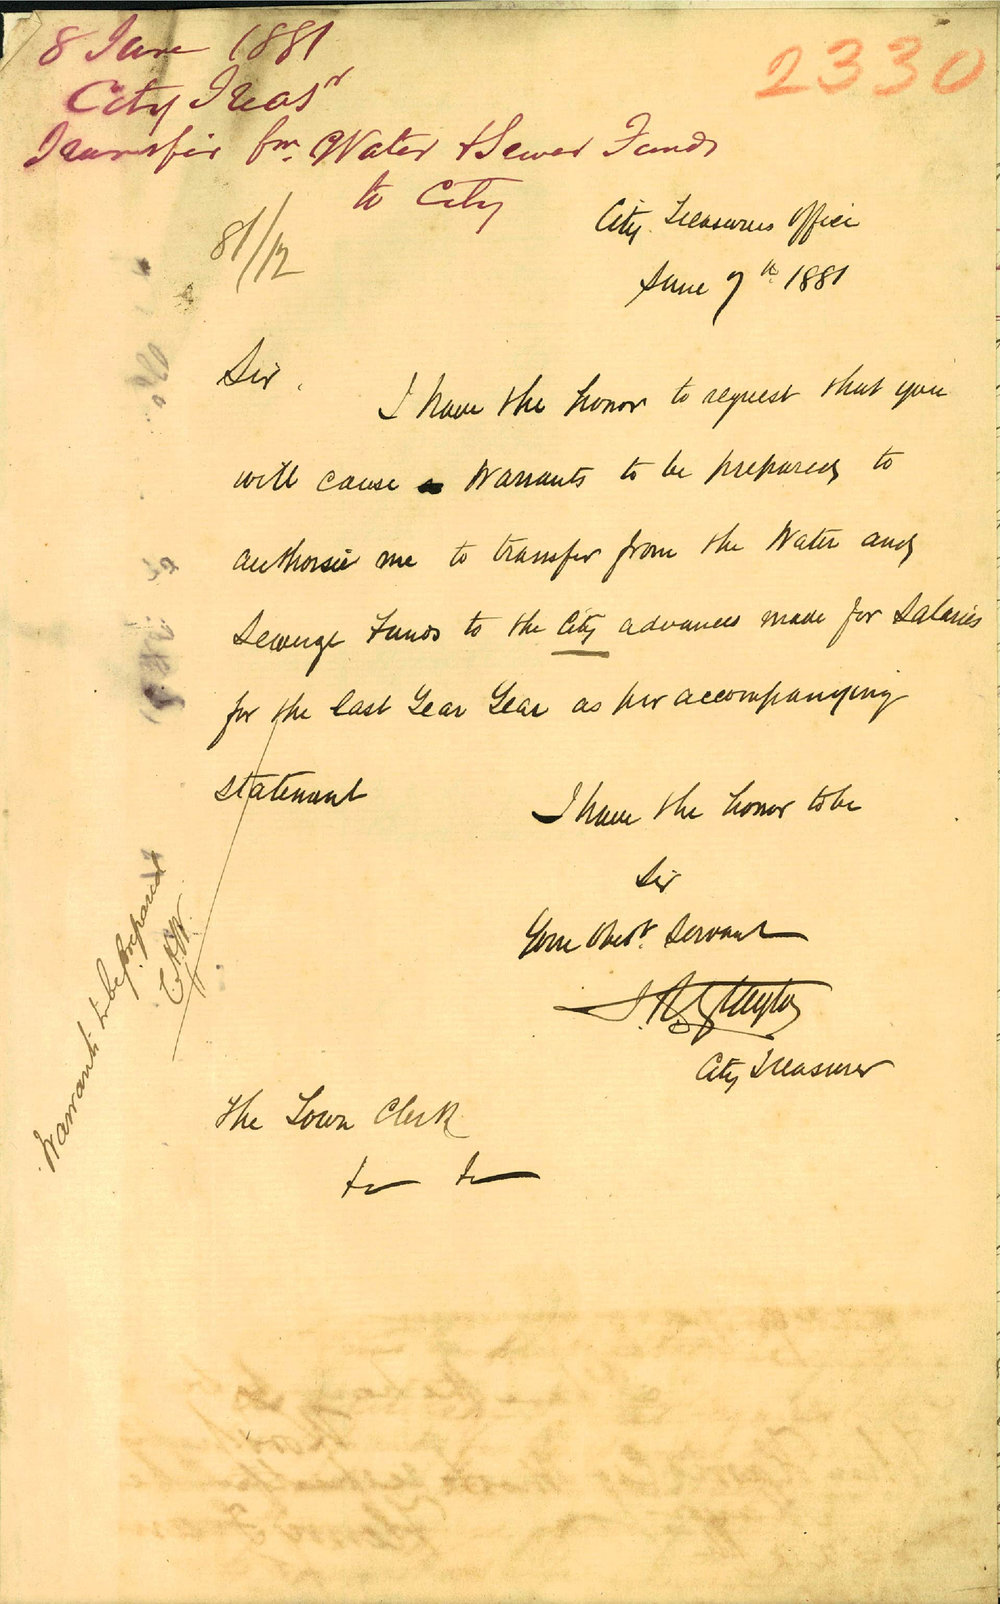 8 June 1881
City Treasr
Transfer fm. Water & Sewer Funds
to City
2330
81/12
City Treasurers Office
June 7th 1881
Sir.
I have the honor to request that you
will cause Warrants to be prepared to
authorise me to transfer from the Water and
Sewerge Funds to the City advances made for Salaries
for the last Year Year as per accompanying
statement
I have the honor to be
Sir
Your Obedt. Servant
City Treasurer
Warrants to be prepared
The Town Clerk